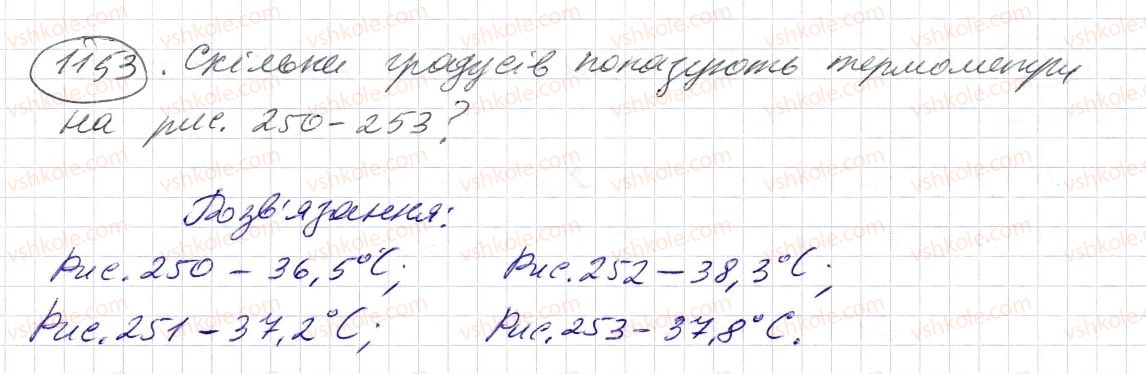 1153. Скільки градусів показують термометри
на рис. 250-253?
Розв'язання:
Рис. 250 - 36,5°C; Рис. 252 - 38,3°C;
Рис. 251 - 37,2°C; Рис. 253 - 37,8°C.